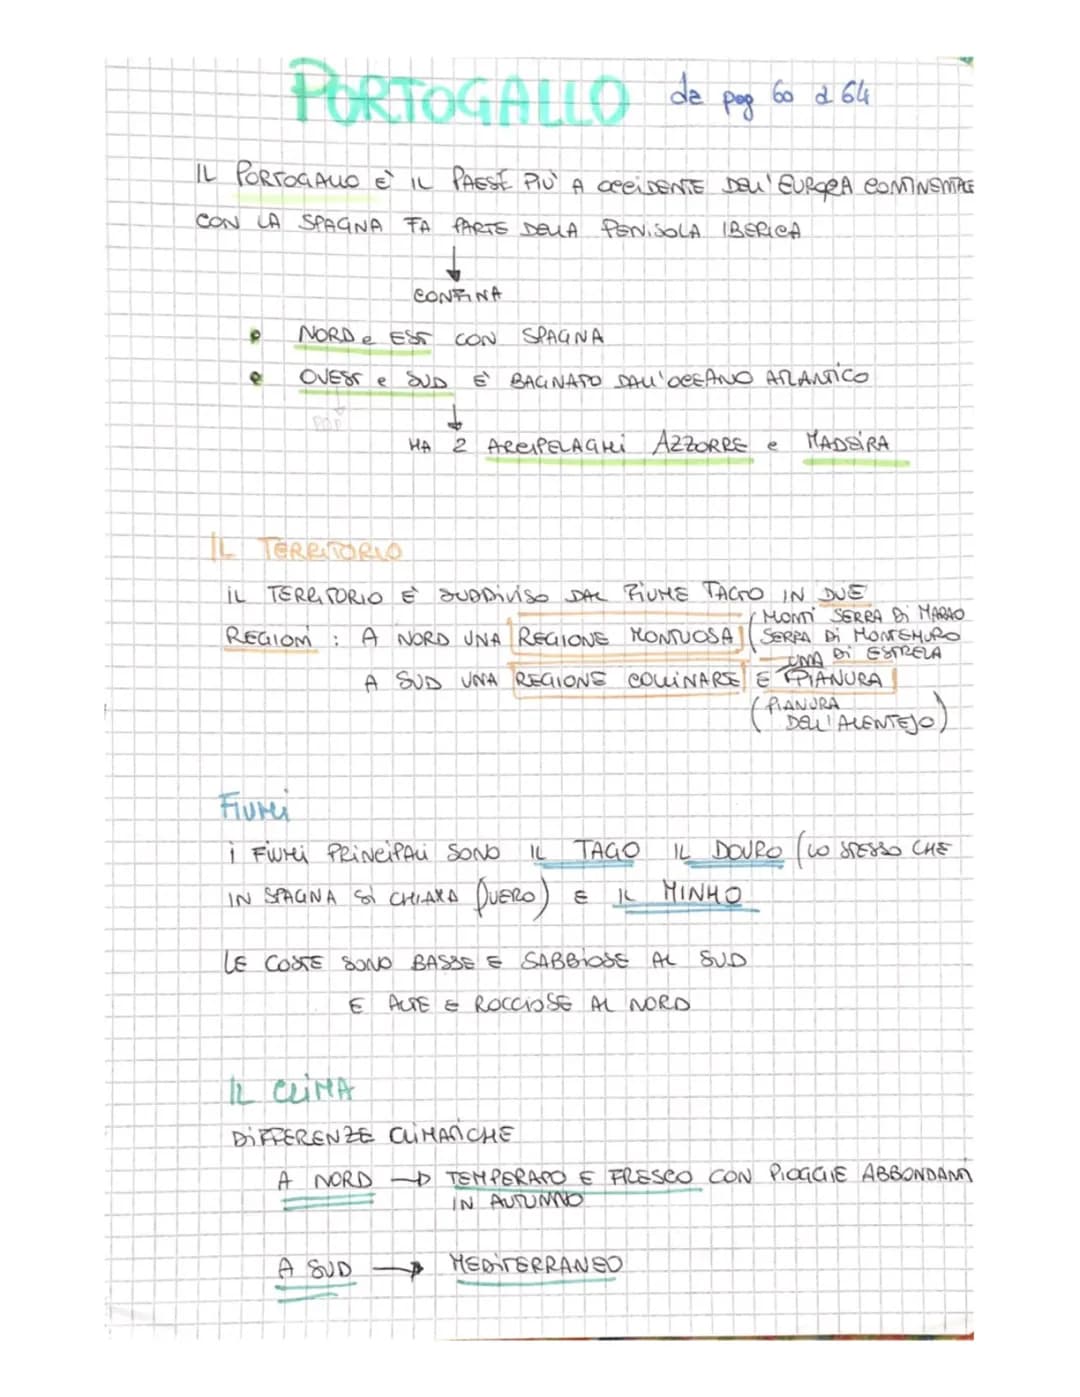 PORTOGALLO da pag 60 a 64
IL PORTOGALLO E' IL PAESE PIU' A OCCIDENTE DELL'EUROPA CONTINENTALE
CON LA SPAGNA FA PARTE DELLA PENISOLA IBERICA
CONFINA
NORD e EST CON SPAGNA
OVEST e SUD E' BAGNATO DALL'OCEANO ATLANTICO
HA 2 ARCIPELAGHI AZZORRE e MADEIRA
IL TERRITORIO
IL TERRITORIO E' SUDDIVISO DAL FIUME TAGO IN DUE
REGIONI : A NORD UNA REGIONE MONTUOSA ( MONTI SERRA DI MARAO
SERRA DI MONTEMURO
DI ESTRELA
A SUD UNA REGIONE COLLINARE E UNA PIANURA
( PIANURA
DELL'ALENTEJO )
FIUMI
I FIUMI PRINCIPALI SONO IL TAGO IL DOURO (LO STESSO CHE
IN SPAGNA SI CHIAMA DUERO) E IL MINHO
LE COSTE SONO BASSE E SABBIOSE AL SUD
E ALTE E ROCCIOSE AL NORD
IL CLIMA
DIFFERENZE CLIMATICHE
A NORD → TEMPERATO E FRESCO CON PIOGGIE ABBONDANTI
IN AUTUNNO
A SUD → MEDITERRANEO